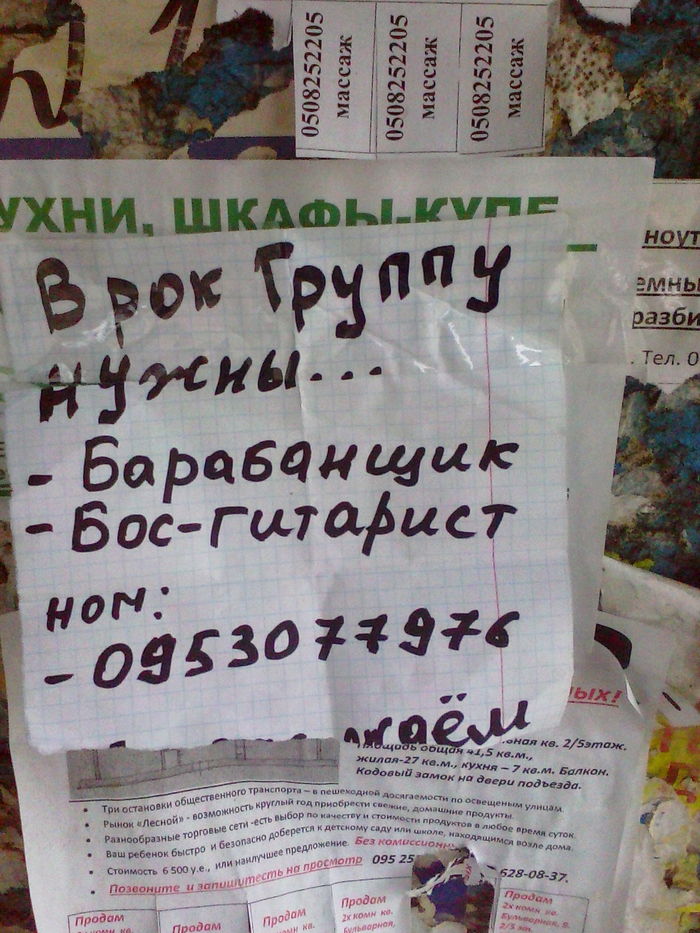 0508252205
массаж
0508252205
массаж
0508252205
массаж
УХНИ, ШКАФЫ-КУПЕ
ноут
емны
разби
. Тел. 0
В рок Группу
нужны...
- Барабанщик
- Бос-гитарист
ном:
- 0953077976
ных!
Площадь общая 41,5 кв.м.,
кв. 2/5этаж.
жилая-27 кв.м., кухня – 7 кв.м. Балкон.
Кодовый замок на двери подъезда.
• Три остановки общественного транспорта – в пешеходной досягаемости по освещеным улицам.
• Рынок «Лесной» - возможность круглый год приобрести свежие, домашние продукты.
• Разнообразные торговые сети -есть выбор по качеству и стоимости продуктов в любое время суток.
• Ваш ребенок быстро и безопасно доберется к детскому саду или школе, находящимся возле дома.
• Стоимость 6 500 у.е., или наилучшее предложение. Без комиссионн
• Позвоните и запишитесть на просмотр 095 25 628-08-37.
Продам
2х комн. кв.
Продам
Продам
2х комн. кв.
Продам
2х комн. кв.
Бульварная,
Продам
2х комн. кв.
Бульварная, 9.
2/5 эт.